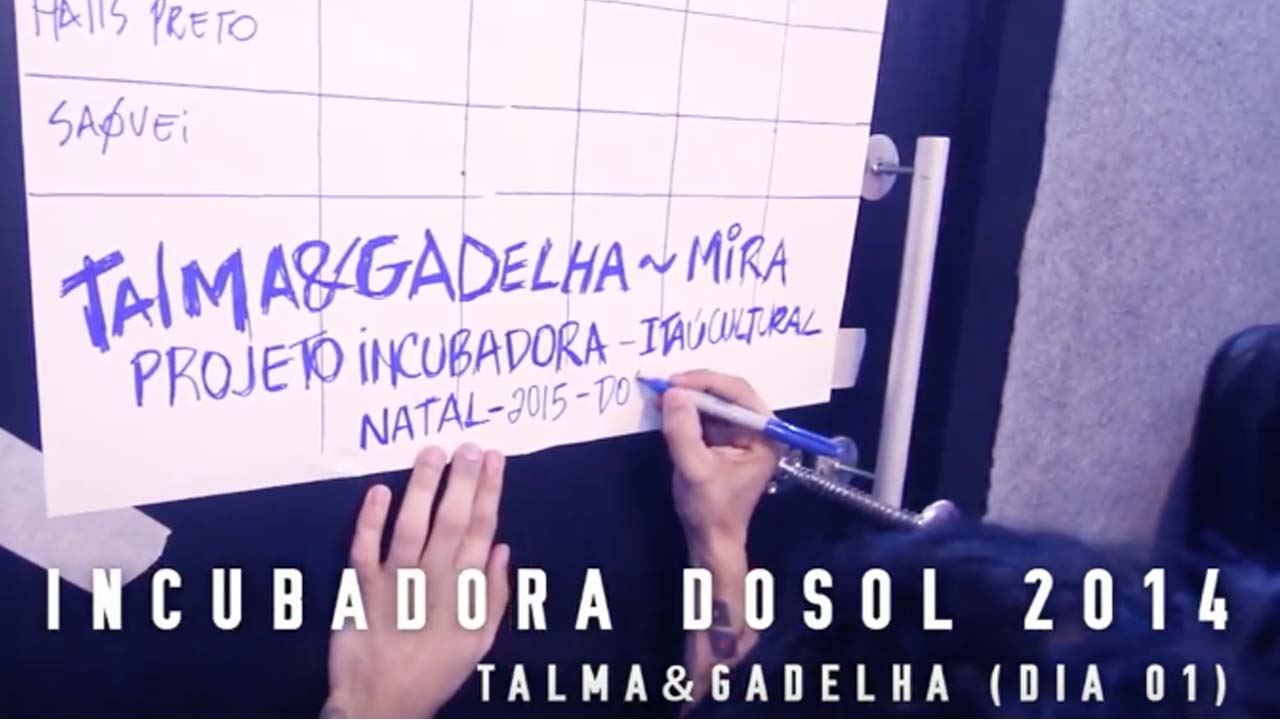 MAIS PRETO
SAØVEi
TAlMA&GADELHA ~ MiRA
PROJETO iNCUBADORA - ITAÚCULTURAL
NATAL-2015-DO
INCUBADORA DOSOL 2014
TALMA&GADELHA (DIA 01)